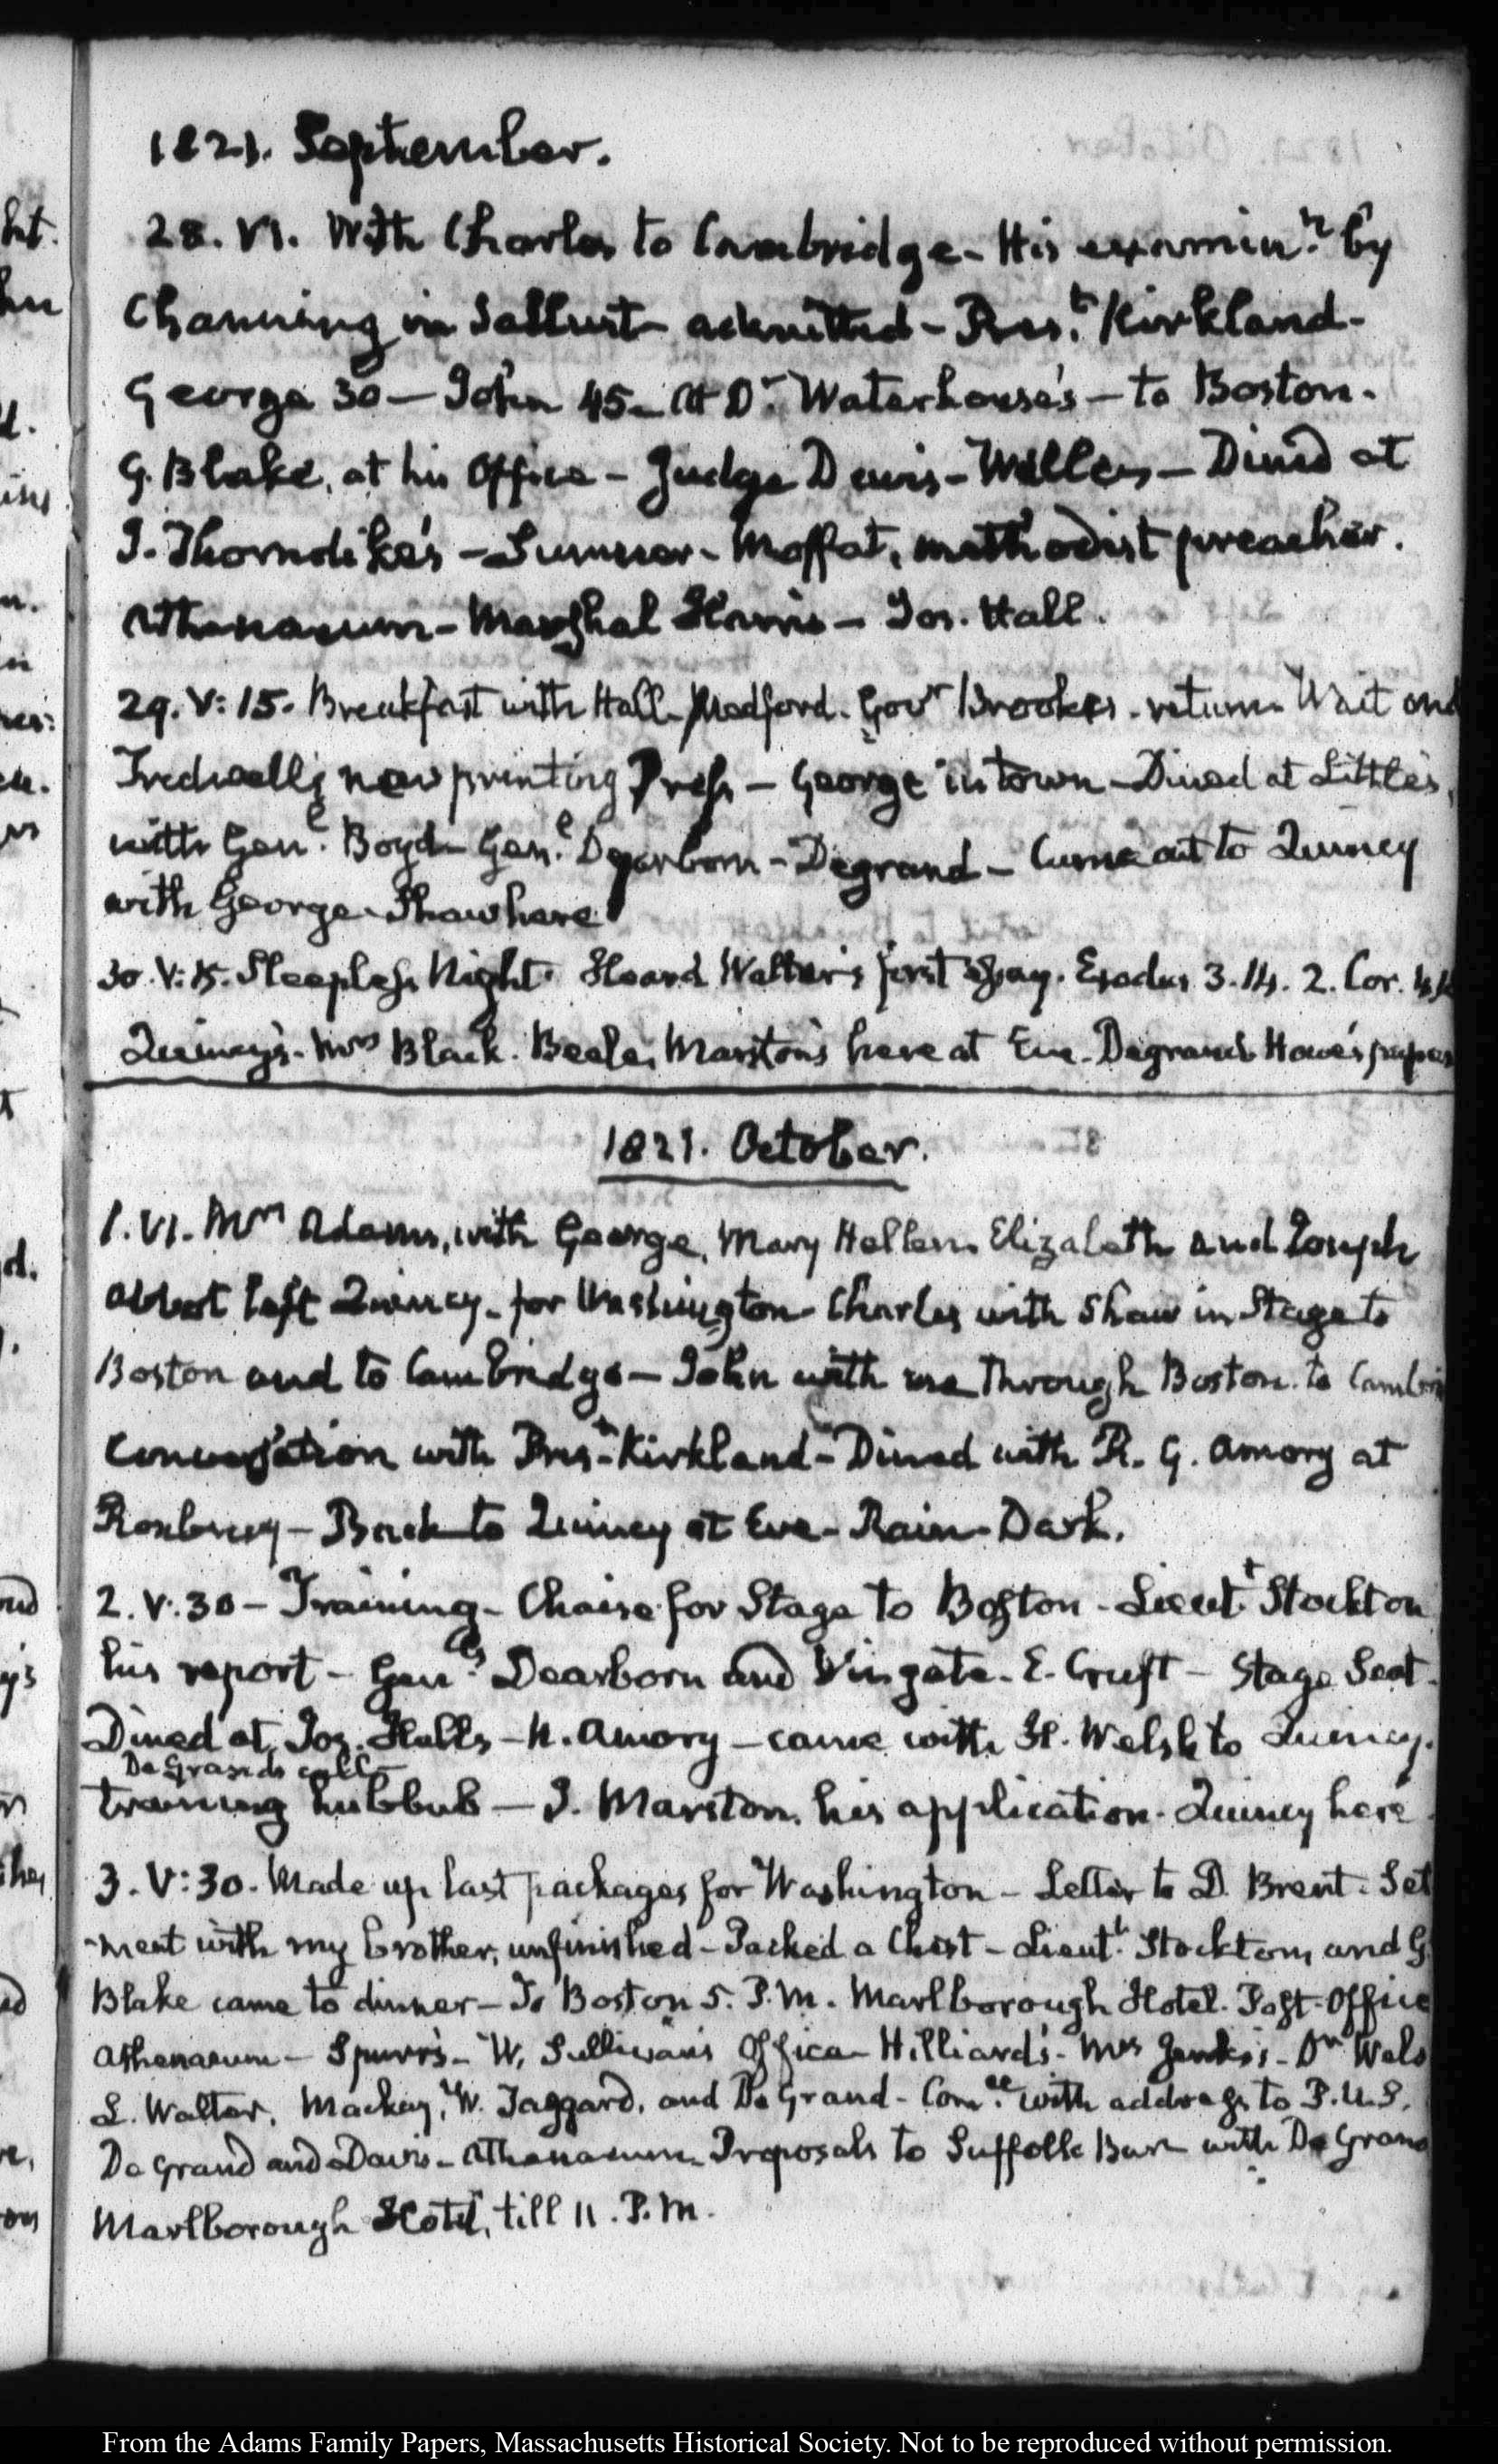 1821. September.
28. VI. With Charles to Cambridge - His examinn. by
Channing in Sallust - admitted - Prest. Kirkland -
George 30 — John 45 - At Dr. Waterhouse's — to Boston.
G. Blake, at his Office - Judge Davis - — Dined at
I. Thorndike's - Sumner - Moffat, methodist preacher.
Athenaeum - Marshal Harris - Jos. Hall.
29. V:15. Breakfast with Hall - Medford. Govr Brooks. return. Wait and
Tredwell's new printing Press — George in town - Dined at Little's,
with Genl. Boyd - Genl. Dearborn - Degrand — Came out to Quincy
with George. Shaw here
30. V:15. Sleepless Night. Heard Walter's first Essay. Exodus 3. 14. 2. Cor.
Quincy's. Mrs Black. Beale, Marston's here at Eve. Degrand. Howe's papers
1821. October.
1. VI. Mrs Adams, with George, Mary Hellen, Elizabeth and Joseph
left Quincy, for Washington. Charles with Shaw in Stage to
Boston and to Cambridge — John with me through Boston. to
Conversation with Prest. Kirkland - Dined with R. G. Amory at
Roxbury - Back to Quincy at Eve - Rain - Dark.
2. V.30 - Training - Chaise for Stage to Boston - Lieutt. Stockton
his report - Genls. Dearborn and Wingate. E. Cruft - Stage Seat.
Dined at Jos. Hall's - N. Amory - came with H. Welsh to Quincy.
De Grand's call
training hubbub — J. Marston, his application. Quincy here.
3. V:30. Made up last packages for Washington - Letter to D. Brent. Set
-ment with my brother, unfinished - Packed a Chest - Lieutt. Stockton, and G.
Blake came to dinner - To Boston 5. P.M. Marlborough Hotel. Post-Office
Athenaeum - Spurr's - W. Sullivan's Office - Hilliard's - Mrs - Dr Wels
L. Walter, Mackay, W. Taggard, and De Grand - Comee. with address to P.U.S.
De Grand and Davis - Athenaeum. Proposals to Suffolk Bar with De Grand
Marlborough Hotel, till 11. P.M.
From the Adams Family Papers, Massachusetts Historical Society. Not to be reproduced without permission.